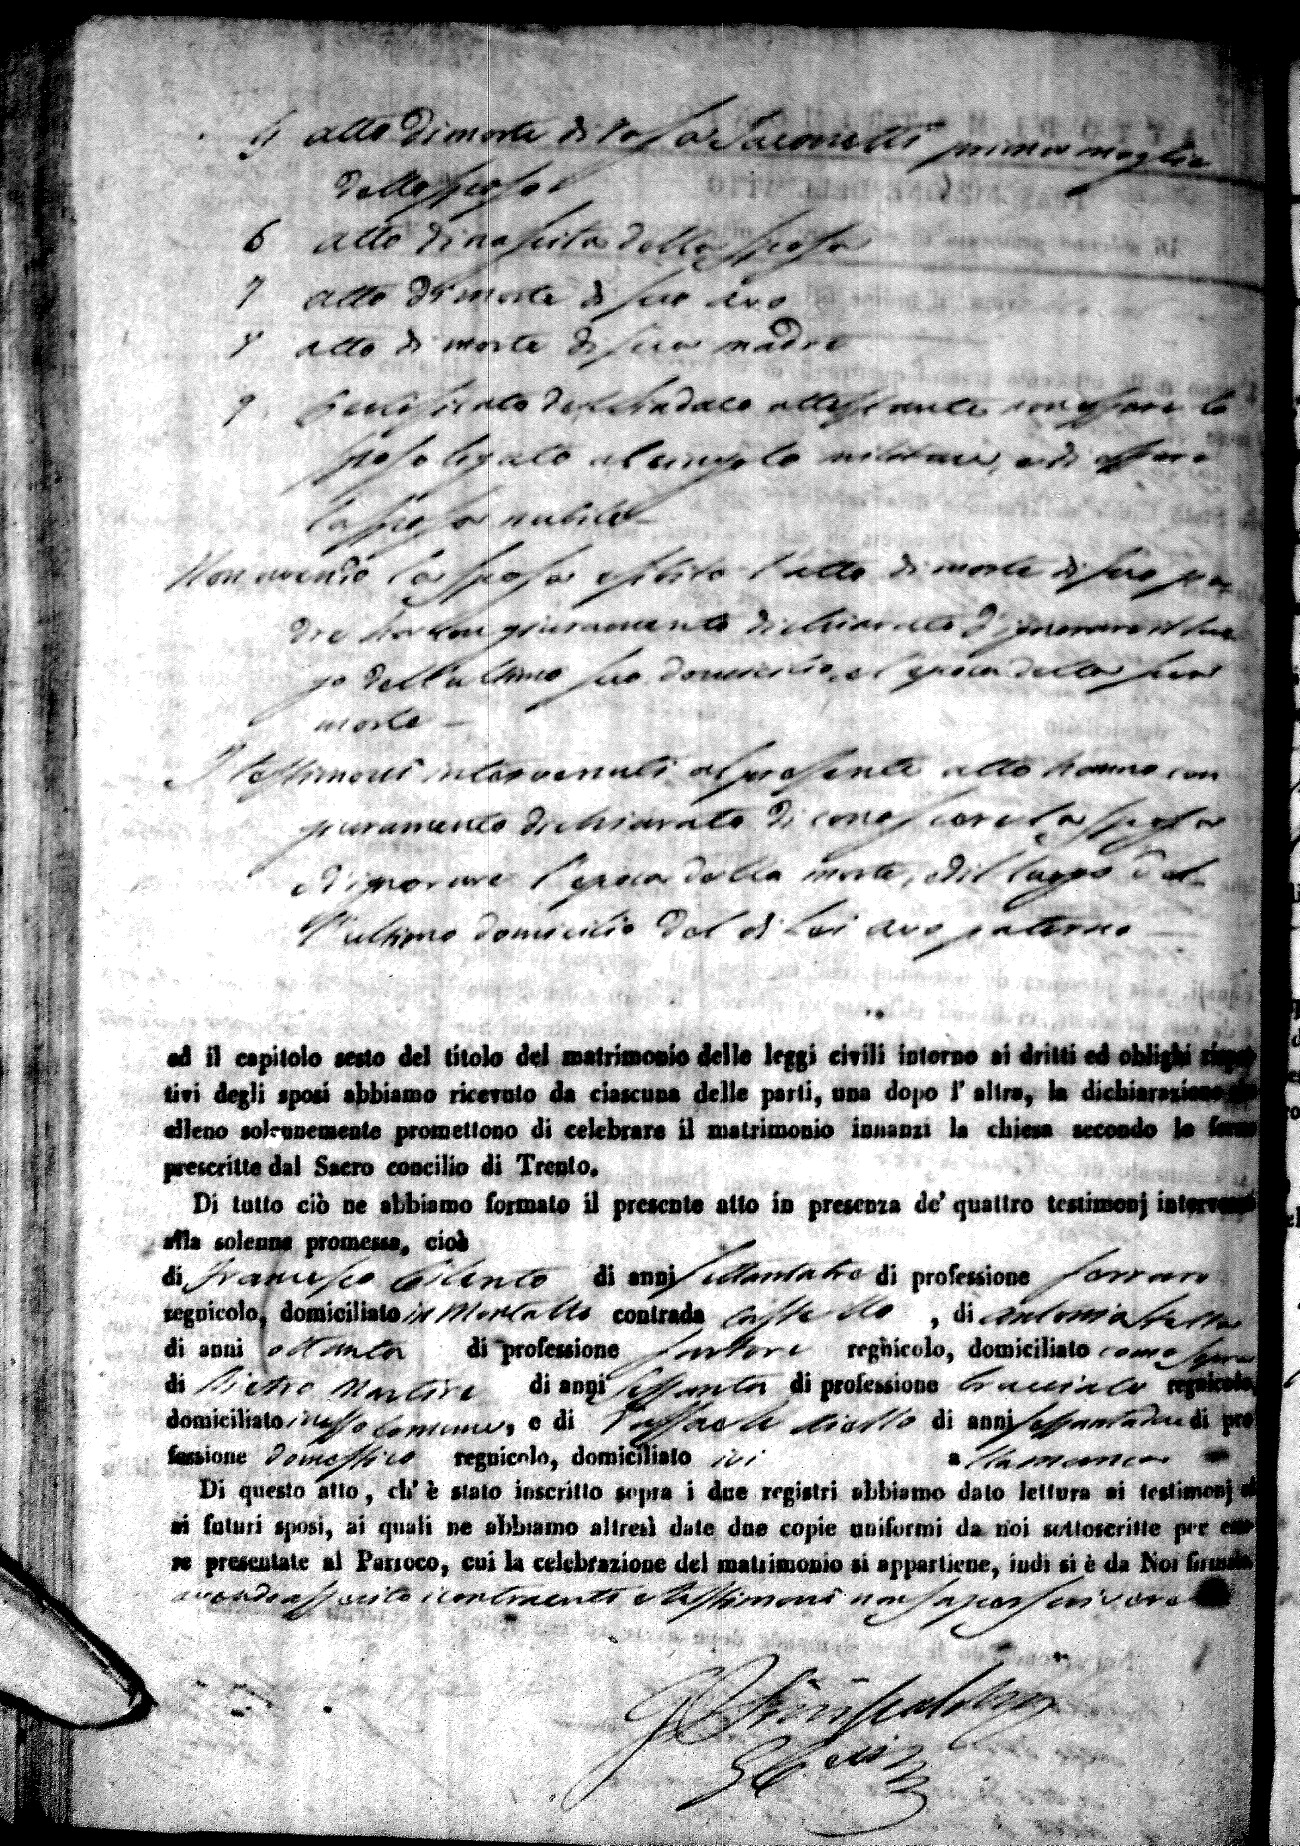 5 atto di morte di Rosa Iaconetti prima moglie
dello sposo
6 atto di nascita della sposa
7 atto di morte di suo avo
8 atto di morte di sua madre
9 Certificato del Sindaco attestante non essere lo
sposo legato al servizio militare, e di essere
la sposa nubile
Non avendo la sposa esibito l'atto di morte di suo pa
dre ha con giuramento dichiarato d'ignorare il luo
go dell'ultimo suo domicilio, e l'epoca della sua
morte
I testimoni intervenuti al presente atto hanno con
giuramento dichiarato di conoscere la sposa
ed ignorare l'epoca della morte, ed il luogo del
l'ultimo domicilio del di lei avo paterno
ed il capitolo sesto del titolo del matrimonio delle leggi civili intorno ai dritti ed oblighi rispet
tivi degli sposi abbiamo ricevuto da ciascuna delle parti, una dopo l' altra, la dichiarazione
elleno solennemente promettono di celebrare il matrimonio innanzi la chiesa secondo le forme
prescritte dal Sacro concilio di Trento.
Di tutto ciò ne abbiamo formato il presente atto in presenza de' quattro testimonj intervenuti
alla solenne promessa, cioè
di Francesco Cilento di anni settantatre di professione ferraro
regnicolo, domiciliato in Montalto contrada Castello , di Antonio
di anni ottanta di professione sartore regnicolo, domiciliato come sopra
di Pietro Martire di anni sessanta di professione bracciale regnicolo,
domiciliato in esso Comune, e di Raffaele Aiello di anni sessantadue di pro
fessione domestico regnicolo, domiciliato ivi a
Di questo atto, ch' è stato inscritto sopra i due registri abbiamo dato lettura ai testimonj ed
ai futuri sposi, ai quali ne abbiamo altresì date due copie uniformi da noi sottoscritte per esse
re presentate al Parroco, cui la celebrazione del matrimonio si appartiene, indi si è da Noi firmato
avendo asserito i contraenti e testimoni non saper scrivere